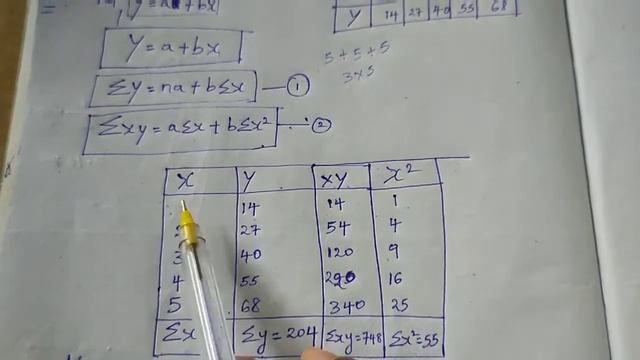 Y 14 27 40 55 68
Y = a + bx
5 + 5 + 5
3x5
Σy = na + bΣx — ①
Σxy = aΣx + bΣx² — ②
X Y XY X²
14 14 1
2 27 54 4
3 40 120 9
4 55 220 16
5 68 340 25
Σx Σy = 204 Σxy = 748 Σx² = 55